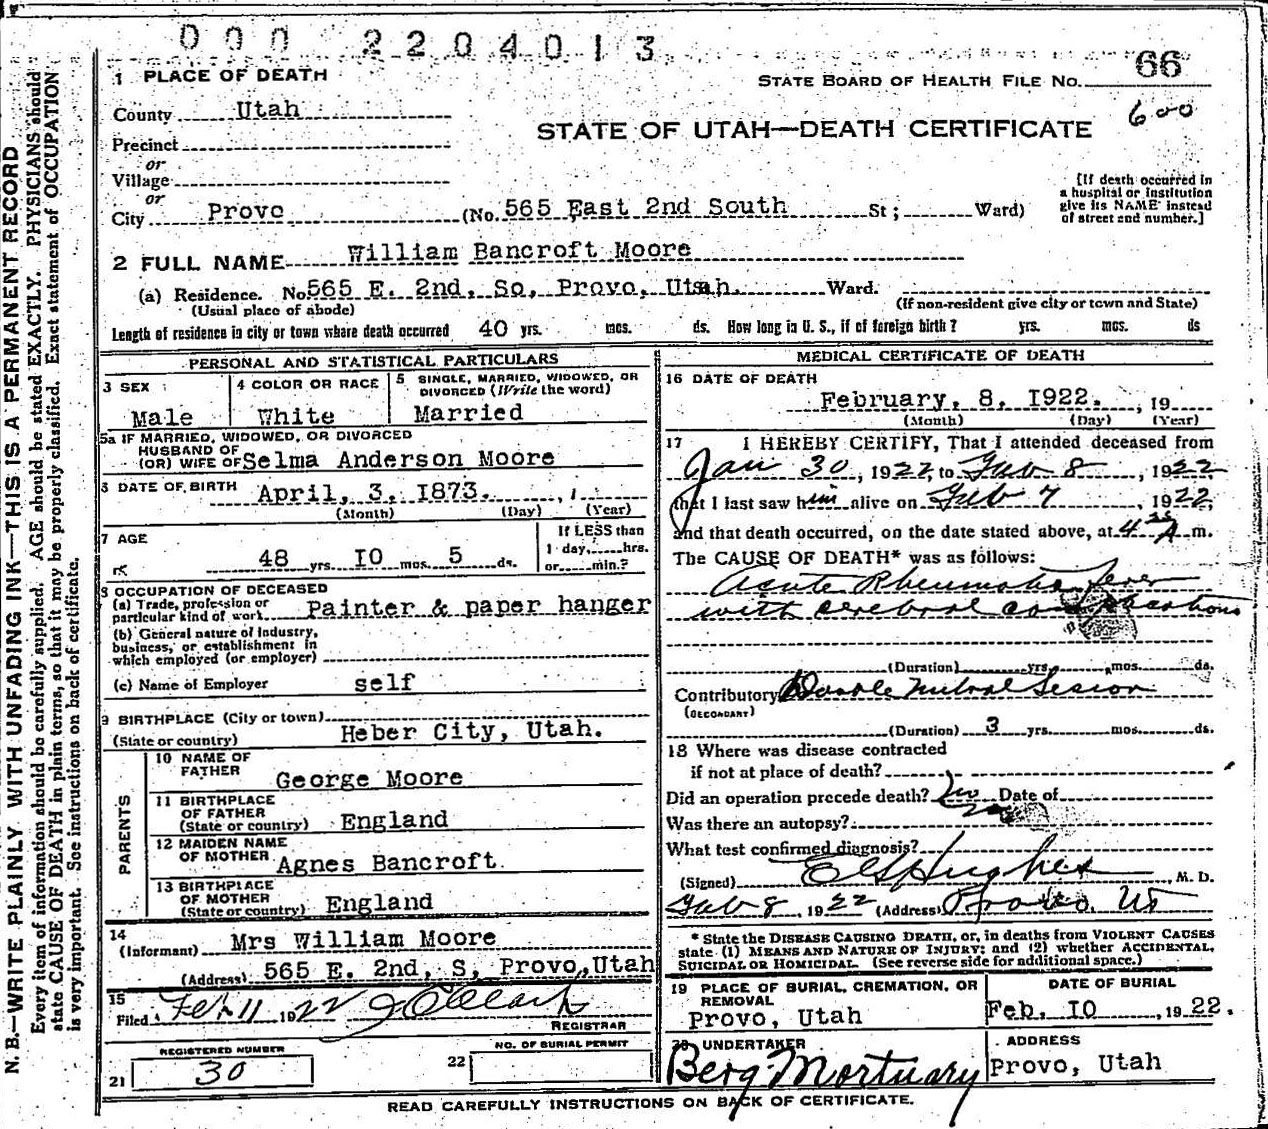 000 2204013
1 PLACE OF DEATH
STATE BOARD OF HEALTH FILE NO. 66
600
County Utah
STATE OF UTAH—DEATH CERTIFICATE
Precinct
or
Village
or
City Provo (No. 565 East 2nd South St; Ward)
[If death occurred in
a hospital or institution
give its NAME instead
of street and number.]
2 FULL NAME William Bancroft Moore
(a) Residence. No 565 E. 2nd, So, Provo, Utah. Ward.
(Usual place of abode)
(If non-resident give city or town and State)
Length of residence in city or town where death occurred 40 yrs. mos. ds. How long in U. S., if of foreign birth? yrs. mos. ds
PERSONAL AND STATISTICAL PARTICULARS
3 SEX
Male
4 COLOR OR RACE
White
5 SINGLE, MARRIED, WIDOWED, OR
DIVORCED (Write the word)
Married
5a IF MARRIED, WIDOWED, OR DIVORCED
HUSBAND OF
(OR) WIFE OF Selma Anderson Moore
6 DATE OF BIRTH April, 3, I873.
(Month) (Day) (Year)
7 AGE
48 yrs. IO mos. 5 ds.
If LESS than
1 day, hrs.
or min.?
8 OCCUPATION OF DECEASED
(a) Trade, profession or
particular kind of work Painter & paper hanger
(b) General nature of Industry,
business, or establishment in
which employed (or employer)
(c) Name of Employer self
9 BIRTHPLACE (City or town)
(State or country) Heber City, Utah.
PARENTS
10 NAME OF
FATHER George Moore
11 BIRTHPLACE
OF FATHER
(State or country) England
12 MAIDEN NAME
OF MOTHER Agnes Bancroft.
13 BIRTHPLACE
OF MOTHER
(State or country) England
14
(Informant) Mrs William Moore
(Address) 565 E. 2nd, S, Provo, Utah
15
Filed Feb 11 1922
REGISTRAR
REGISTERED NUMBER
21 30
NO. OF BURIAL PERMIT
22
MEDICAL CERTIFICATE OF DEATH
16 DATE OF DEATH
February, 8, I922. , 19
(Month) (Day) (Year)
17 I HEREBY CERTIFY, That I attended deceased from
Jan 30, 1922, to Feb 8, 1922
that I last saw him alive on Feb 7, 1922,
and that death occurred, on the date stated above, at 4 A m.
The CAUSE OF DEATH* was as follows:
Acute Rheumatic fever
with cerebral complications
(Duration) yrs. mos. ds.
Contributory Double Mitral Lesion
(SECONDARY)
(Duration) 3 yrs. mos. ds.
18 Where was disease contracted
if not at place of death?
Did an operation precede death? No Date of
Was there an autopsy? No
What test confirmed diagnosis?
(Signed) Hughes, M. D.
Feb 8, 1922 (Address) Provo, Ut
* State the DISEASE CAUSING DEATH, or, in deaths from VIOLENT CAUSES
state (1) MEANS AND NATURE OF INJURY; and (2) whether ACCIDENTAL,
SUICIDAL OR HOMICIDAL. (See reverse side for additional space.)
19 PLACE OF BURIAL, CREMATION, OR
REMOVAL
Provo, Utah
DATE OF BURIAL
Feb. IO , 1922.
20 UNDERTAKER
Berg Mortuary
ADDRESS
Provo, Utah
READ CAREFULLY INSTRUCTIONS ON BACK OF CERTIFICATE.
N. B.—WRITE PLAINLY WITH UNFADING INK—THIS IS A PERMANENT RECORD
Every item of information should be carefully supplied. AGE should be stated EXACTLY. PHYSICIANS should
state CAUSE OF DEATH in plain terms, so that it may be properly classified. Exact statement of OCCUPATION
is very important. See instructions on back of certificate.